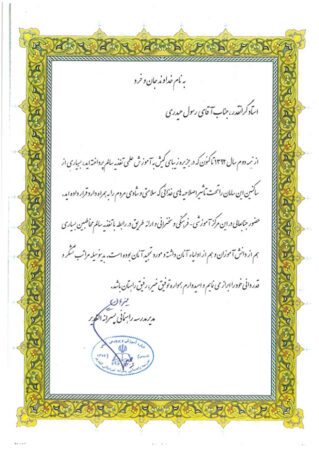 به نام خداوند جان و خرد
استاد گرانقدر، جناب آقای رسول حیدری
از نیمه دوم سال ۱۳۹۲ تاکنون که در جزیره زیبای کیش به آموزش علمی تغذیه سالم پرداخته‌اید، بسیاری از
ساکنین این سامان را تحت تأثیر اصلاحیه‌های غذائی که سلامتی و شادی مردم را به همراه دارد قرار داده‌اید.
حضور جنابعالی در این مرکز آموزشی - فرهنگی و سخنرانی و ارائه طریق در رابطه با تغذیه سالم مخاطبین بسیاری
هم از دانش‌آموزان و هم از اولیاء آنان داشته و مورد تمجید آنان بوده است. بدینوسیله مراتب تشکر و
قدردانی خود را ابراز می‌نمایم و امیدوارم همواره توفیق خیر، رفیق راهتان باشد.
مدیر مدرسه راهنمائی پسرانه الغدیر